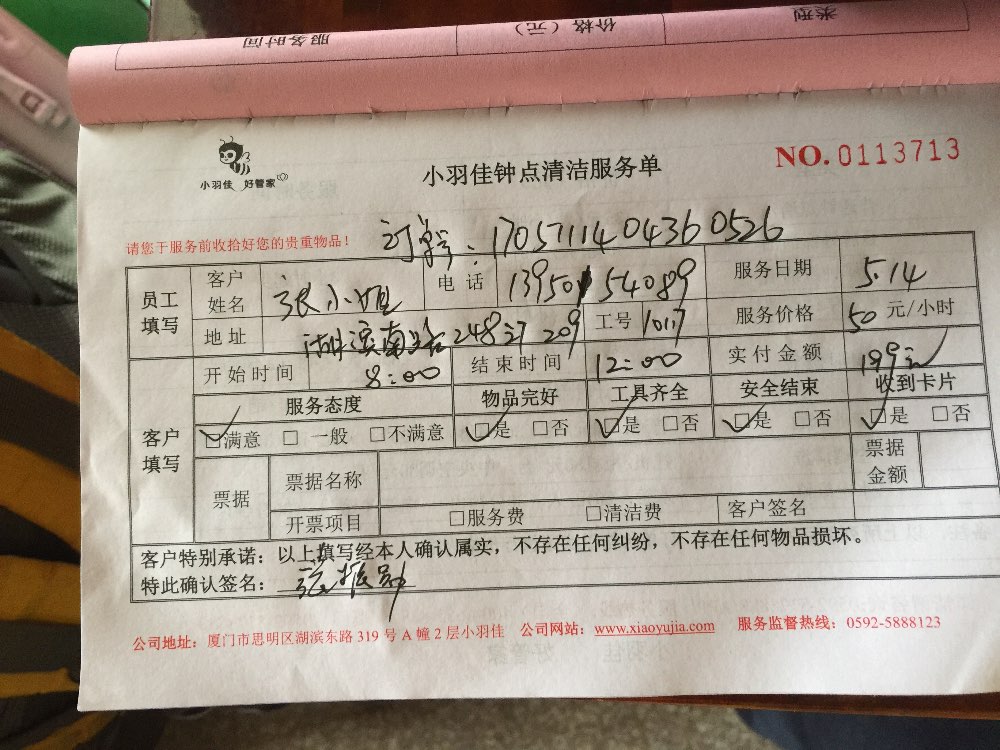 服务时间 价格（元） 类型
小羽佳 好管家
小羽佳钟点清洁服务单
NO. 0113713
请您于服务前收拾好您的贵重物品！
订单号：17057114043600526
员工填写 客户姓名 张小姐 电话 13950154089 服务日期 5.14
地址 湖滨南路248号209 工号 1017 服务价格 50 元/小时
客户填写 开始时间 8:00 结束时间 12:00 实付金额 199元
服务态度 物品完好 工具齐全 安全结束 收到卡片
☑满意 □ 一般 □不满意 ☑是 □否 ☑是 □否 ☑是 □否 ☑是 □否
票据 票据名称 票据金额
开票项目 □服务费 □清洁费 客户签名
客户特别承诺：以上填写经本人确认属实，不存在任何纠纷，不存在任何物品损坏。
特此确认签名：
公司地址：厦门市思明区湖滨东路 319 号 A 幢 2 层小羽佳 公司网站：www.xiaoyujia.com 服务监督热线：0592-5888123